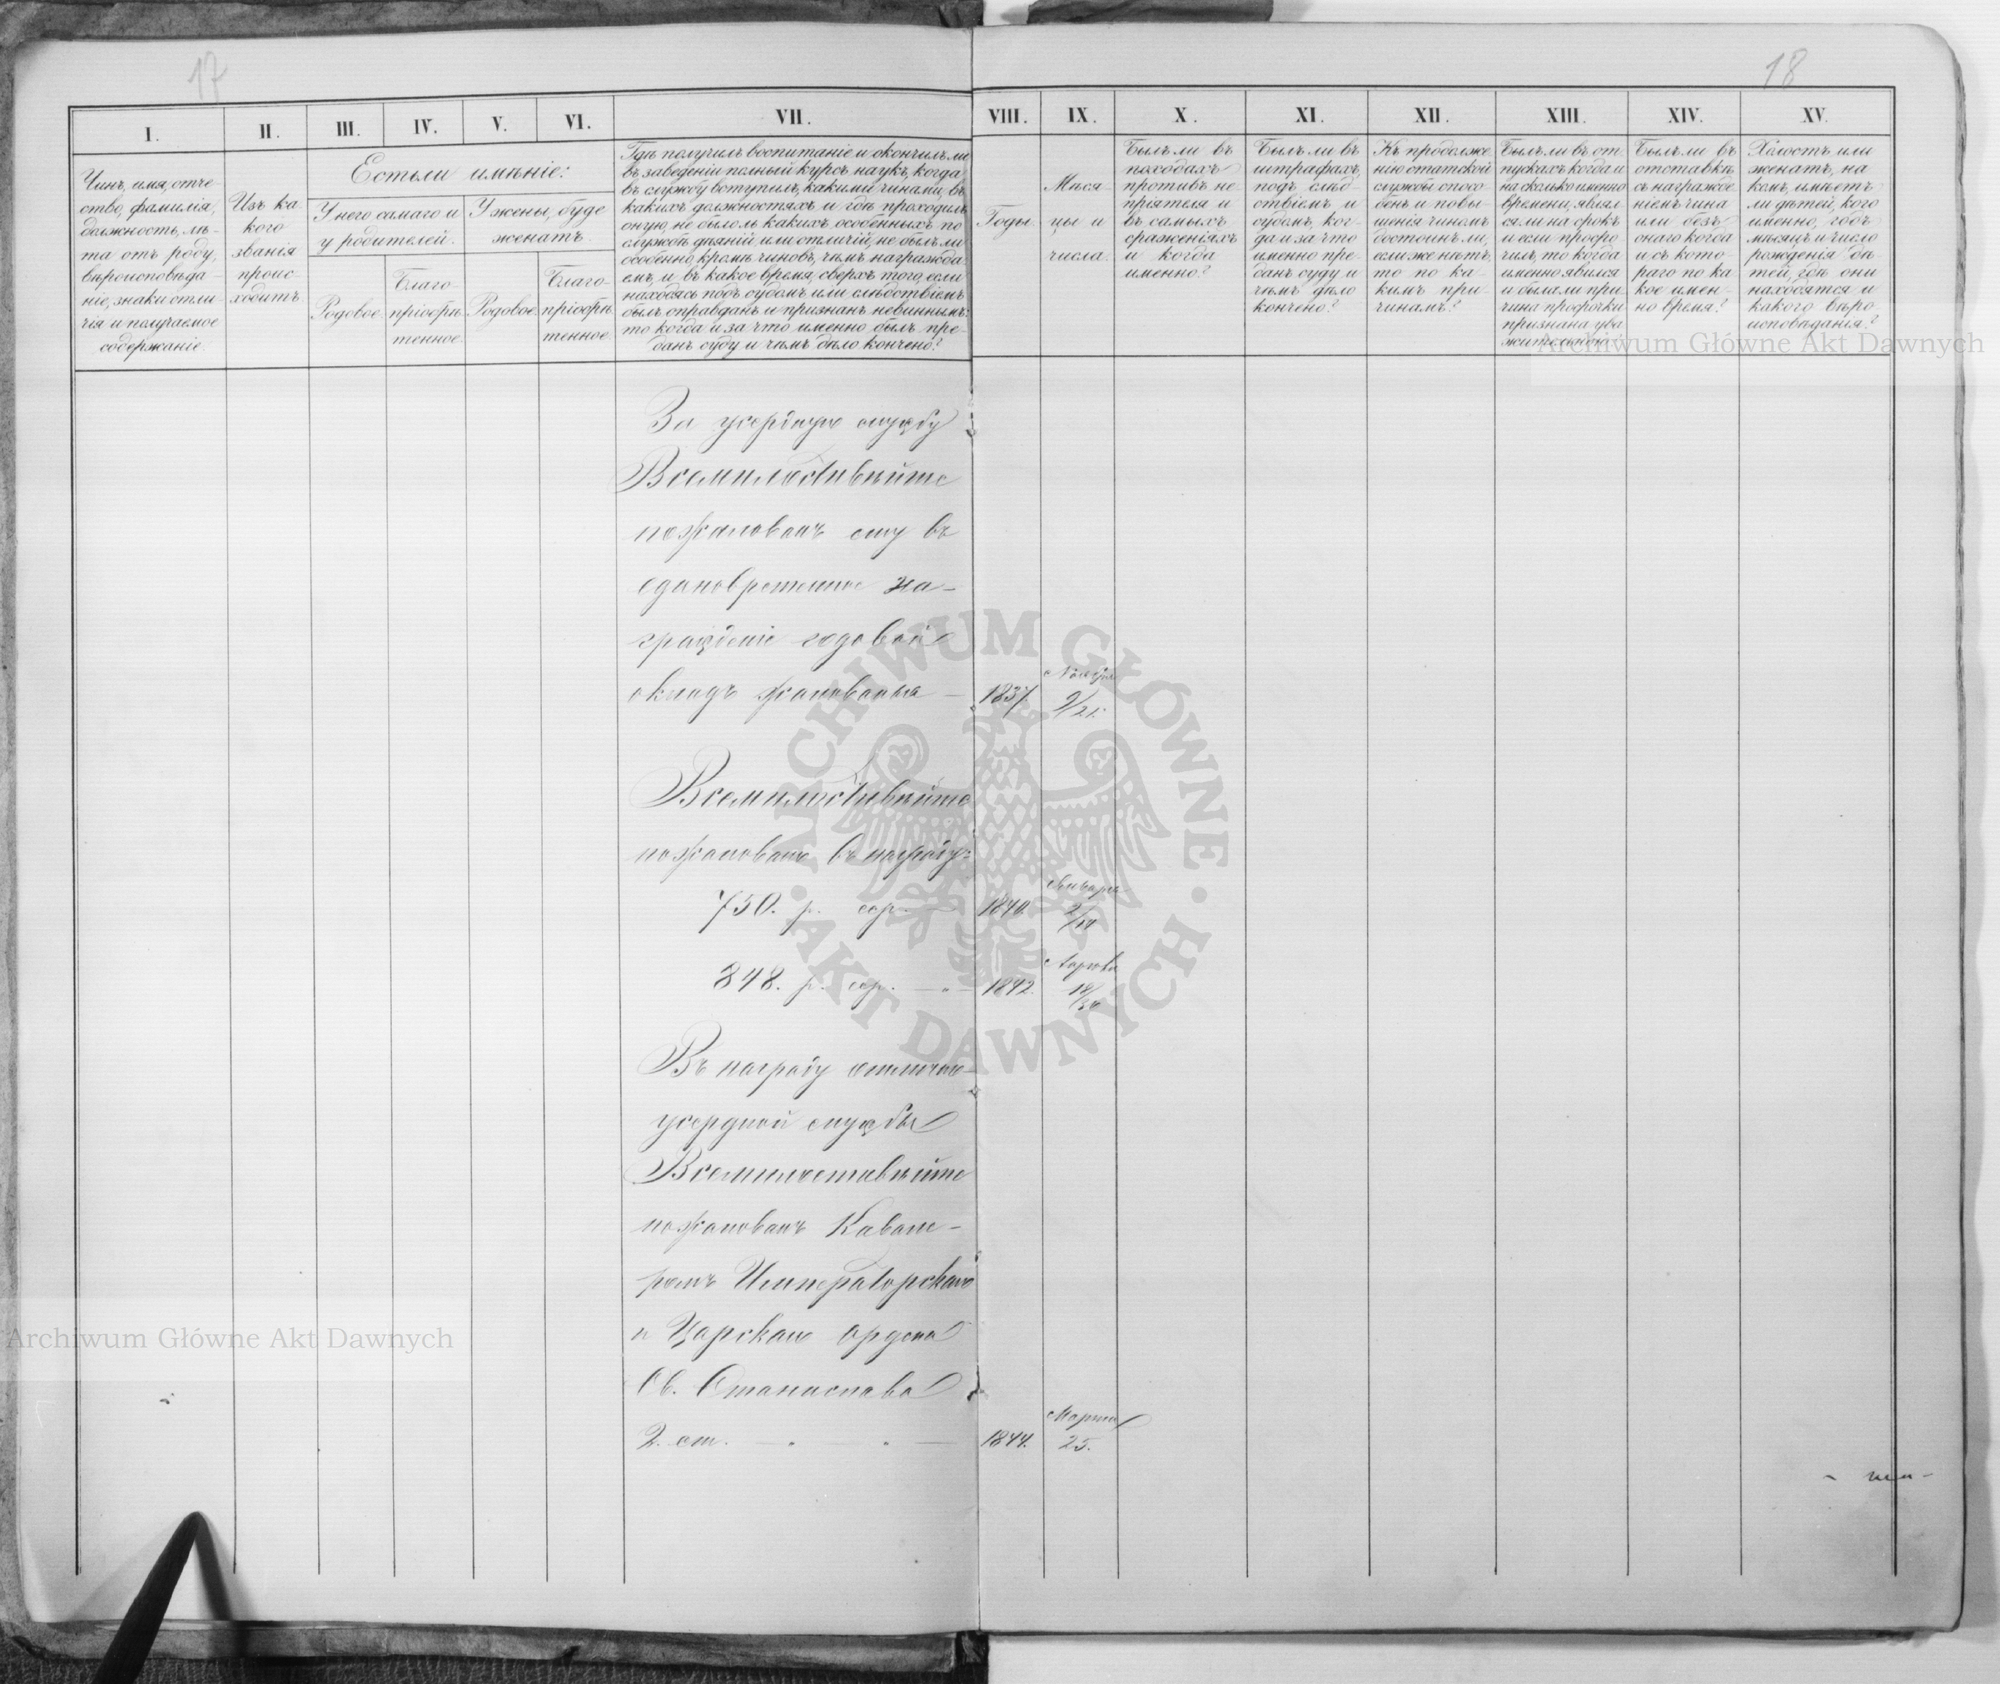 17
18
I.
II.
III.
IV.
V.
VI.
VII.
VIII.
IX.
X.
XI.
XII.
XIII.
XIV.
XV.
Чинъ, имя, отче
ство, фамилія,
должность, лѣ
та отъ роду,
вѣроисповѣда
ніе, знаки отли
чія и получаемое
содержаніе.
Изъ ка
кого
званія
проис
ходитъ
Естьли имѣніе:
У него самаго и
у родителей.
У жены, буде
женатъ.
Родовое
Благо-
пріобрѣ
тенное.
Родовое
Благо-
пріобрѣ
тенное.
Гдѣ получилъ воспитаніе и окончилъ ли
въ заведеніи полный курсъ наукъ, когда
въ службу вступилъ, какими чинами, въ
какихъ должностяхъ и гдѣ проходилъ
оную, не было ль какихъ особенныхъ по
службѣ дѣяній или отличій, не былъ ли
особенно, кромѣ чиновъ, чѣмъ награжда
емъ, и въ какое время, сверхъ того, если
находясь подъ судомъ или слѣдствіемъ
былъ оправданъ и признанъ невиннымъ:
то когда и за что именно былъ пре-
данъ суду и чѣмъ дѣло кончено?
Годы.
Мѣся
цы и
числа.
Былъ ли въ
походахъ
противъ не
пріятеля и
въ самыхъ
сраженіяхъ
и когда
именно?
Былъ ли въ
штрафахъ,
подъ слѣд-
ствіемъ и
судомъ, ког-
да и за что
именно пре-
данъ суду и
чѣмъ дѣло
кончено?
Къ продолже
нію статской
службы спосо-
бенъ и повы-
шенія чиномъ
достоинъ ли,
если же нѣтъ,
то по ка-
кимъ при-
чинамъ?
Былъ ли въ от-
пускахъ когда и
на сколько именно
времени, явил
ся ли на срокъ
и если просро
чилъ, то когда
именно явился
и была ли при
чина просрочки
признана ува
жительною
Былъ ли въ
отставкѣ
съ награжде
ніемъ чина
или безъ
онаго когда
и съ кото-
раго по ка
кое имен-
но время?
Холостъ или
женатъ, на
комъ, имѣетъ
ли дѣтей, кого
именно, годъ
мѣсяцъ и число
рожденія дѣ
тей, гдѣ они
находятся и
какого вѣро-
исповѣданія?
Archiwum Główne Akt Dawnych
За усердную службу
Всемилостивѣйше
пожалованъ ему въ
единовременное на-
гражденіе годовой
окладъ жалованья — 1837. Ноября 9/21.
Всемилостивѣйше
пожаловано въ награду:
750. р. сер. — 1840. Января 2/14
848. р. сер. — " — 1842. 18/30
Въ награду отлично-
усердной службы
Всемилостивѣйше
пожалованъ Кавале-
ромъ Императорскаго
и Царскаго ордена
Св. Станислава
2. ст. — 1844. Марта 25.
ARCHIWUM GŁÓWNE
AKT DAWNYCH
Archiwum Główne Akt Dawnych